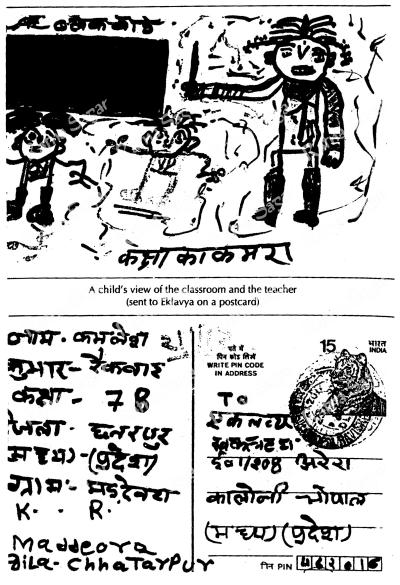 कक्षा का कमरा
A child's view of the classroom and the teacher
(sent to Eklavya on a postcard)
नाम - कमलेश
कुमार - रैकवार
कक्षा - 7 B
जिला - छतरपुर
मध्य - (प्रदेश)
ग्राम - मड़देवरा
K. R.
Maddeora
Zila - Chhatarpur
पते में
पिन कोड लिखें
WRITE PIN CODE
IN ADDRESS
15
भारत
INDIA
TO
एकलव्य
अरेरा
कालोनी भोपाल
(मध्य) (प्रदेश)
पिन PIN 462016